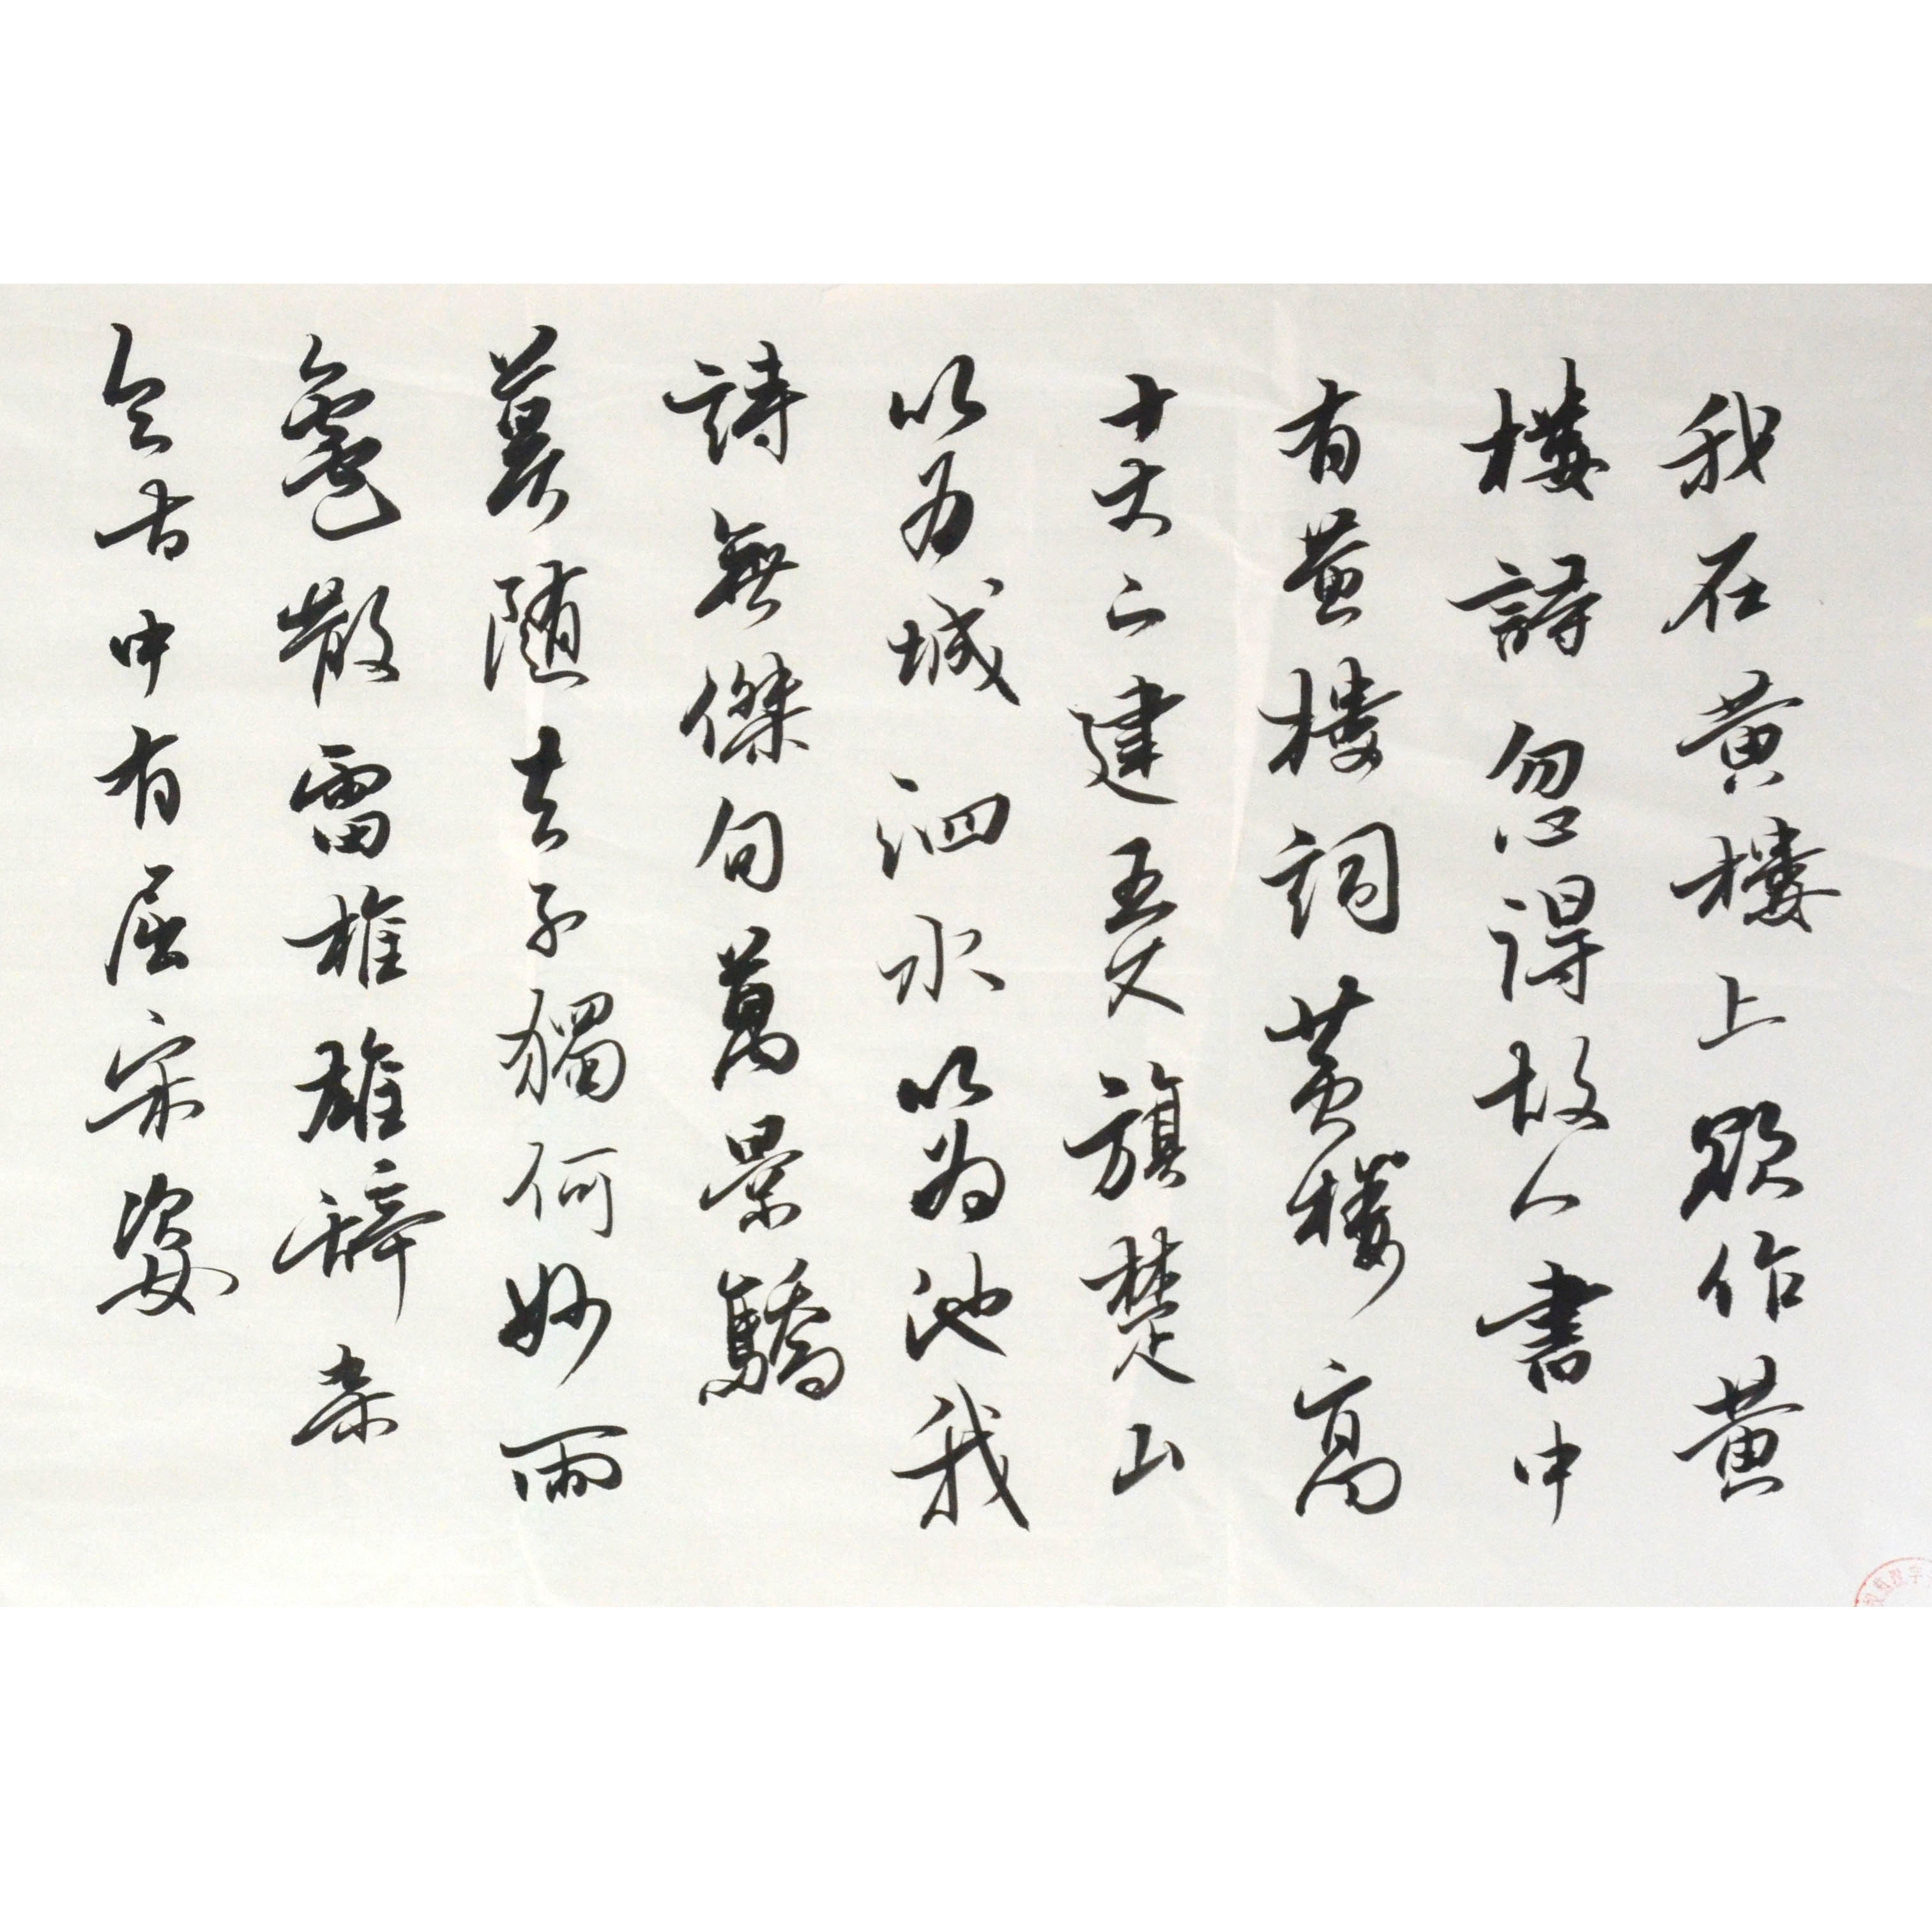 我在黄樓上欲作黄
樓詩忽得故人書中
有黄樓詞黄樓高
十丈下建五丈旗楚山
以为城泗水以为池我
詩無傑句萬景驕
莫随夫子獨何妙雨
雹散雷椎雄辞杂
今古中有屈宋姿